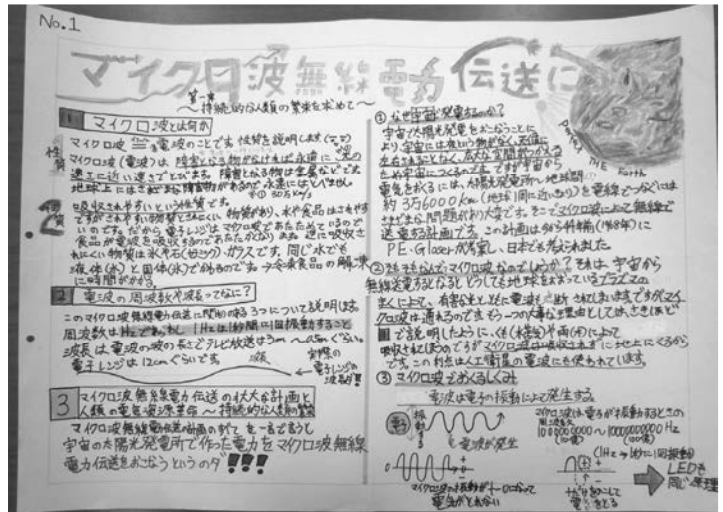 No.1
マイクロ波無線電力伝送に
第一章
〜持続的な人類の繁栄を求めて〜
1 マイクロ波とは何か
マイクロ波 電波のことです。性質を説明します
性質
マイクロ波(電波)は、障害となる物がなければ永遠に、光の
速さに近い速さでとびます。障害となる物は金属などです。
地球上にはさまざまな障害物があるので永遠にはとびません。
※① 30万km/s
吸収されやすいという性質です。
ですがされやすい物質とされにくい物質があり、水や食品はされやす
いのです。だから電子レンジはマイクロ波であたためているので
れにくい物質は氷や石(せっこう)、ガラスです。同じ水でも
液体(水)と固体(氷)でかわるのです。→冷凍食品の解凍
に時間がかかる。
2 電波の周波数や波長ってなに?
このマイクロ波無線電力伝送に関わりのある3つについて説明します。
周波数はHzで表わし、1Hzは1秒間に1回振動すること
波長は電波の波の長さでテレビ放送は3m〜0.5mぐらい。
電子レンジは12cmぐらいです。
波長
実際の
電子レンジの
波長
3 マイクロ波無線電力伝送の壮大な計画と
人類の電気資源革命〜持続的な人類の繁栄
マイクロ波無線電力伝送の計画のすべてを一言で言うと
宇宙の太陽光発電所で作った電力をマイクロ波無線
電力伝送をおこなうというのダ!!!
① なぜ宇宙で発電するのか?
宇宙で太陽光発電をおこなうことに
より、宇宙には夜という物がなく、天候に
左右されることなく、広大な空間がつかえる
ため宇宙につくるのです。ですが宇宙から
電気をおくるには、太陽光発電所〜地球間の
約3万6000km(地球1周に近い)を電線でつなぐには
さまざまな問題があり大変です。そこでマイクロ波によって無線で
送電する計画です。この計画は
P.E・Glaserが考案し、日本でも考えられました。
the Earth
② そもそもなんでマイクロ波なのでしょうか?それは、宇宙から
無線送電するとなるとどうしても地球をおおっているプラズマの
まくによって、有害な光とともに電波も
クロ波は通れるのです。もう一つの大事な理由としては、さきほど
1で説明したように、くも(水蒸気)や雨(水)によって
吸収されてしまうのですがマイクロ波は吸収されずに地上にくるから
です。この利点は人工衛星の電波にも使われています。
③ マイクロ波でおくるしくみ
電波は電子の振動によって発生する。
電子
振動する
電波が発生
マイクロ波は電子が振動するときの
周波数が
マイクロ波の振動が+-0になって
電気がとれない
(1Hz→1秒に1回振動)
電気をとる
LEDも
同じ原理